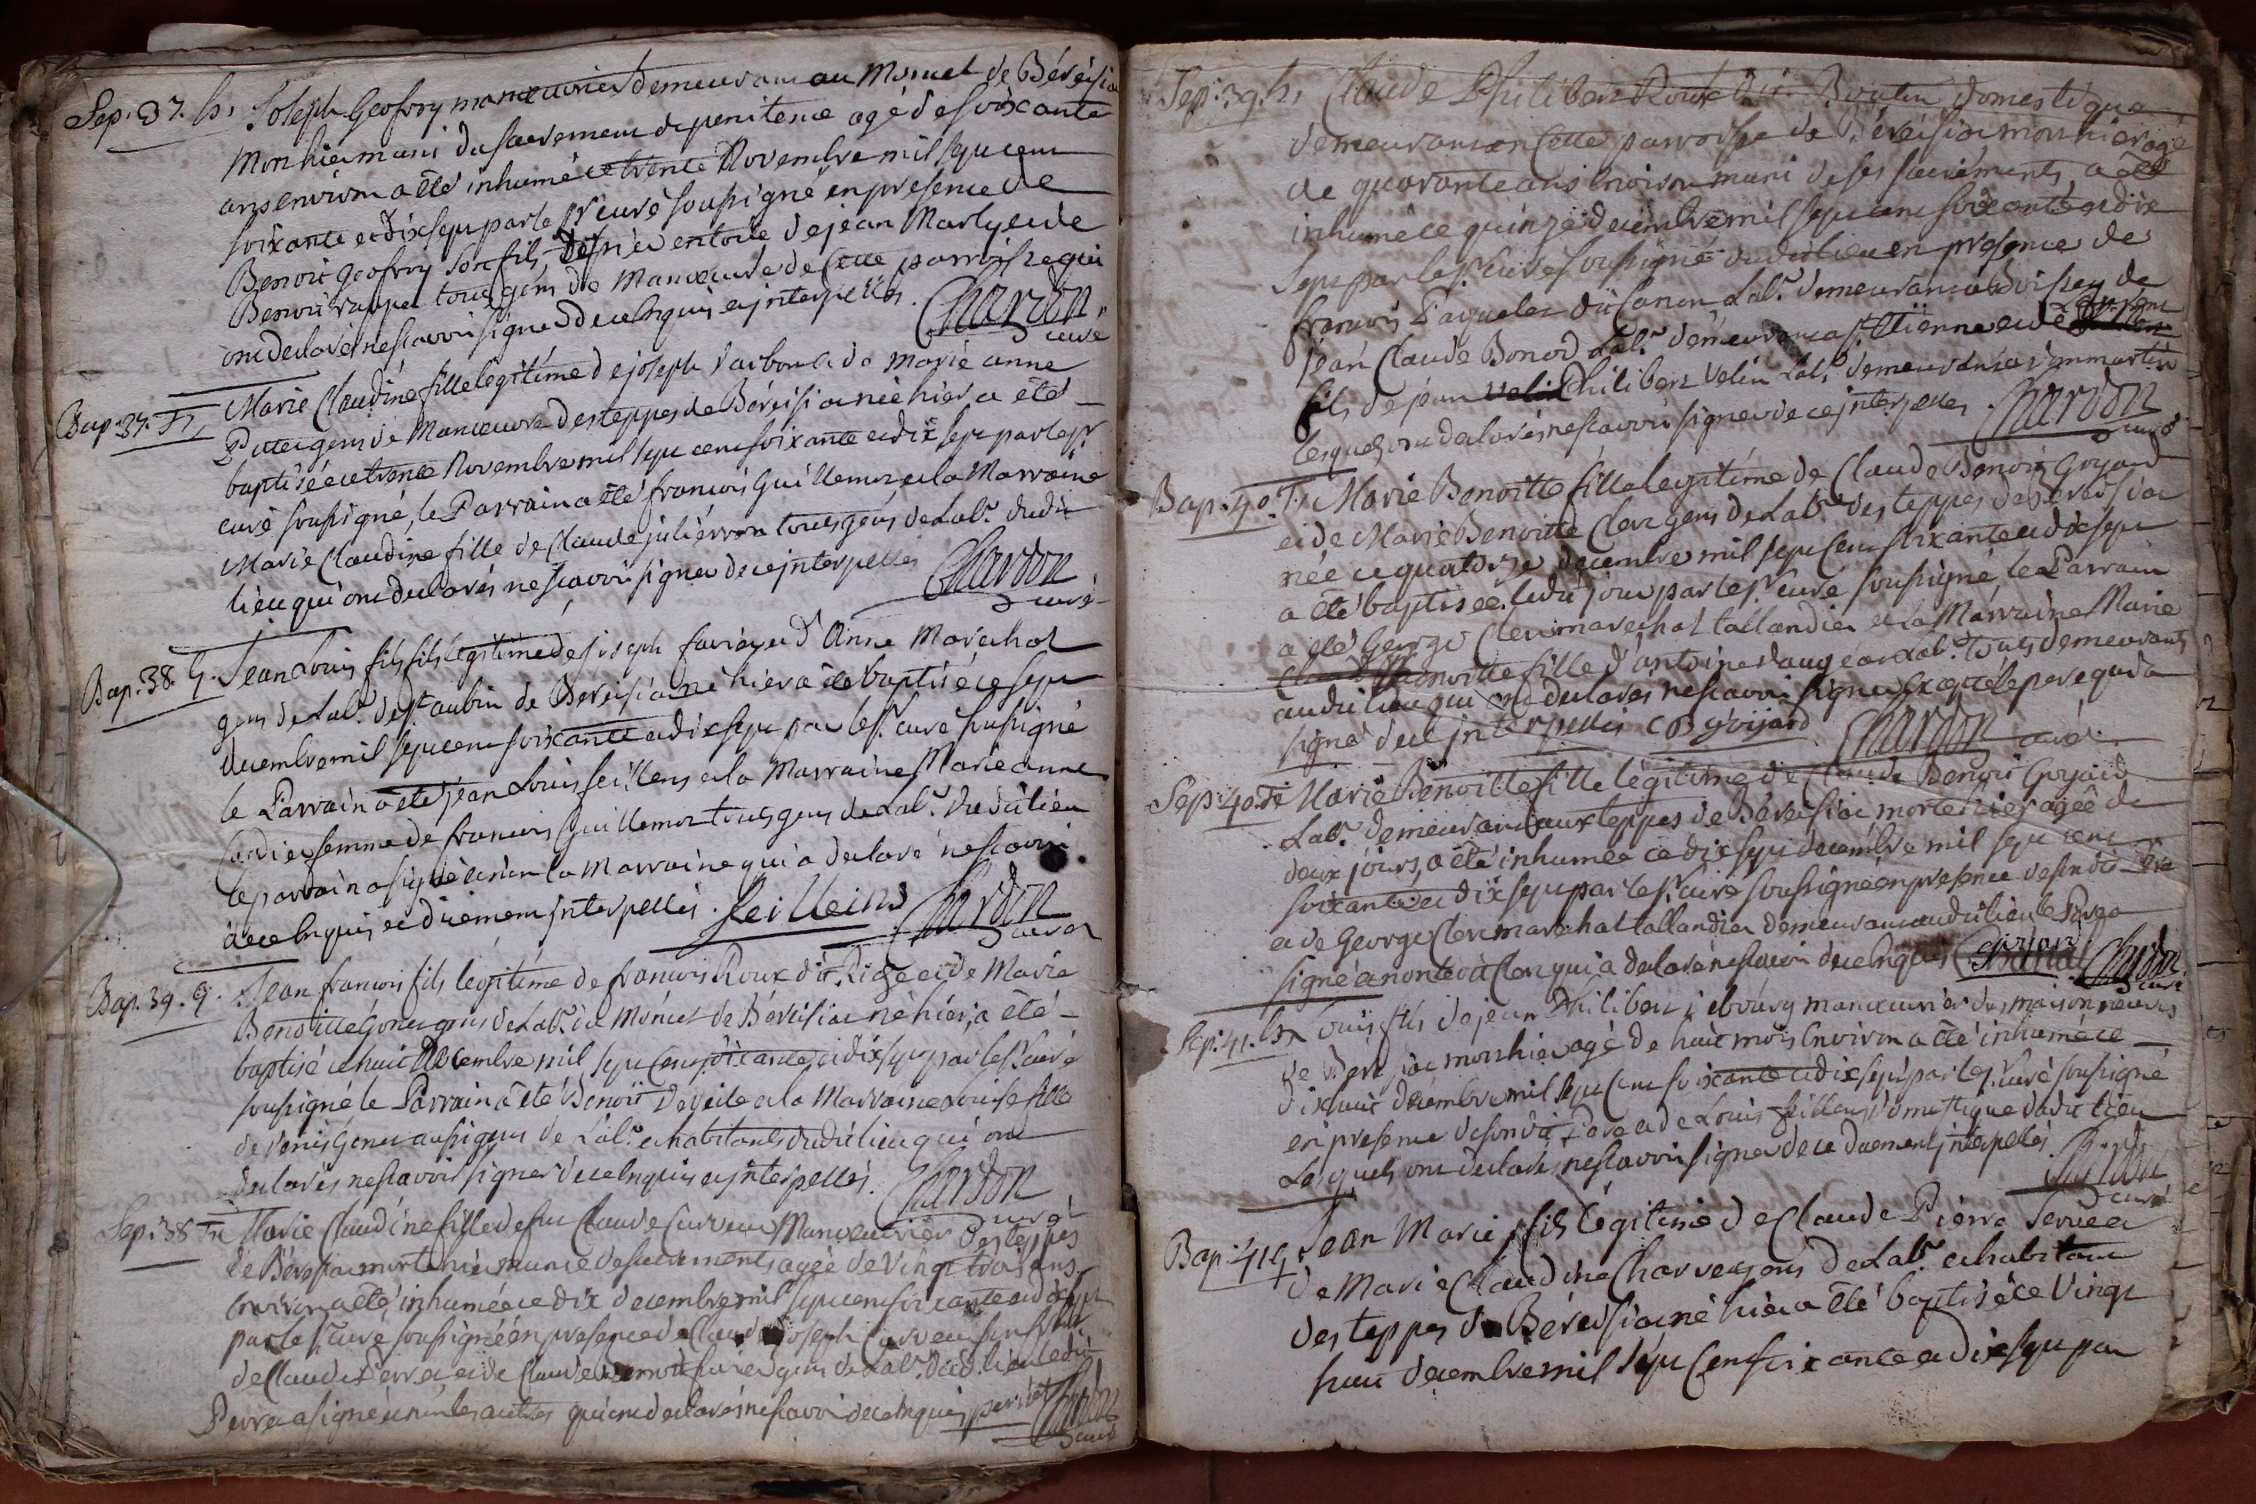 Sep. 37. h. Joseph Geofroy manœuvrier demeurant au Moncet de Béréisia
Mort hier muni du sacrement de penitence agé de soixante
ans environ a été inhumé ce trente Novembre mil sept cent
soixante et dix sept par le sr curé soussigné en presence de
Benoit geofroy son fils de jean Marly et de
Benoit tous gens de Manœuvre de Cette parroisse qui
ont declaré ne scavoir signer de ce enquis et interpellés. Chardon
curé
Bap. 37. F. Marie Claudine fille legitime de joseph et de marie anne
gens de Manœuvre des teppes de Béréisia née hier a été
baptisée ce trente Novembre mil sept cent soixante et dix sept par le sr
curé soussigné, le Parrain a été francois Guillemot et la Marraine
Marie Claudine fille de Claude tous gens de Labr. dudit
lieu qui ont declarés ne scavoir signer de ce interpellés Chardon
curé
Bap. 38. G. Jean Louis fils fils legitime de joseph et d'Anne Marechal
gens de Labr. de st. aubin de Béréisia né hier a été baptisé ce sept
decembre mil sept cent soixante et dix sept par le sr. curé soussigné
le Parrain a été jean Louis feillens et la Marraine Marie anne
femme de francois Guillemot tous gens de Labr. dudit lieu
le parrain a signé et non la Marraine qui a declaré ne scavoir
de ce enquis et duement interpellés. feilleins Chardon
curé
Bap. 39. G. Jean francois fils legitime de francois Roux dit et de Marie
Benoitte Gonet gens de Labr. du Moncet de Béréisia né hier, a été
baptisé ce huit Decembre mil sept cent soixante et dix sept par le sr. curé
soussigné le Parrain a été Benoit et la Marraine Louise fille
de Denis Gonet aussi gens de Labr. et habitants dudit lieu qui ont
declarés ne scavoir signer de ce enquis et interpellés. Chardon
curé
Sep. 38. F. Marie Claudine fille de feu Claude Curveur Manœuvrier des teppes
de Béréisia morte hier munie des sacrements agée de vingt trois ans
environ a été inhumée ce dix decembre mil sept cent soixante et dix sept
par le sr. curé soussigné en presence de Claude joseph Curveur son frere
de Claude Perret et de Claude Benoit gens de Labr. dud. lieu ledit
Perret a signé et non les autres qui ont declarés ne scavoir de ce enquis perret Chardon
curé
Sep. 39. h. Claude Philibert Roux dit Boulin domestique
demeurant en Cette parroisse de Béréisia mort hier agé
de quarante ans environ muni de ses sacrements a été
inhumé ce quinze decembre mil sept cent soixante et dix
sept par le sr. curé soussigné dudit lieu en presence de
francois Paquelet dit Canon Labr. demeurant a Boissey de
jean Claude Bonod Labr. demeurant a st. Etienne et de
fils de jean Philibert Velin Labr. demeurant a dommartin
lesquels ont declarés ne scavoir signer de ce interpellés. Chardon
curé
Bap. 40. F. Marie Benoitte fille legitime de Claude Benoit Goyard
et de Marie Benoitte Clerc gens de Labr. des teppes de Béréisia
née ce quatorze decembre mil sept cent soixante et dix sept
a été baptisée ledit jour par le sr. curé soussigné le Parrain
a été George Clerc marechal taillandier et la Marraine Marie
Benoitte fille d'antoine Labr. tous demeurants
audit lieu qui ont declarés ne scavoir signer excepté le pere qui a
signé de ce interpellés C B goijard Chardon curé
Sep. 40. F. Marie Benoitte fille legitime de Claude Benoit Goyard
Labr. demeurant aux teppes de Béréisia morte hier agée de
deux jours, a été inhumée ce dix sept decembre mil sept cent
soixante et dix sept par le sr. curé soussigné en presence de sondit Pere
et de George Clerc marechal taillandier demeurant audit lieu le Pere a
signé et non ledit Clerc qui a declaré ne scavoir de ce enquis goijard Chardon
curé
Sep. 41. h. Louis fils de jean Philibert manœuvrier des maisons neuves
de Béréisia mort hier agé de huit mois environ a été inhumé ce
dix huit decembre mil sept cent soixante et dix sept par le sr. curé soussigné
en presence de sondit Pere et de Louis feillens domestique dudit lieu
Lesquels ont declarés ne scavoir signer de ce duement interpellés. Chardon
curé
Bap. 41. G. Jean Marie fils légitime de Claude Pierre et
de Marie Claudine Charvet gens de Labr. et habitant
des teppes de Béréisia né hier a été baptisé ce vingt
huit decembre mil sept cent soixante et dix sept par